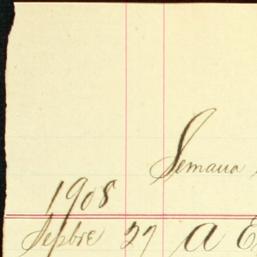 Semana
1908
Sepbre 27 A E